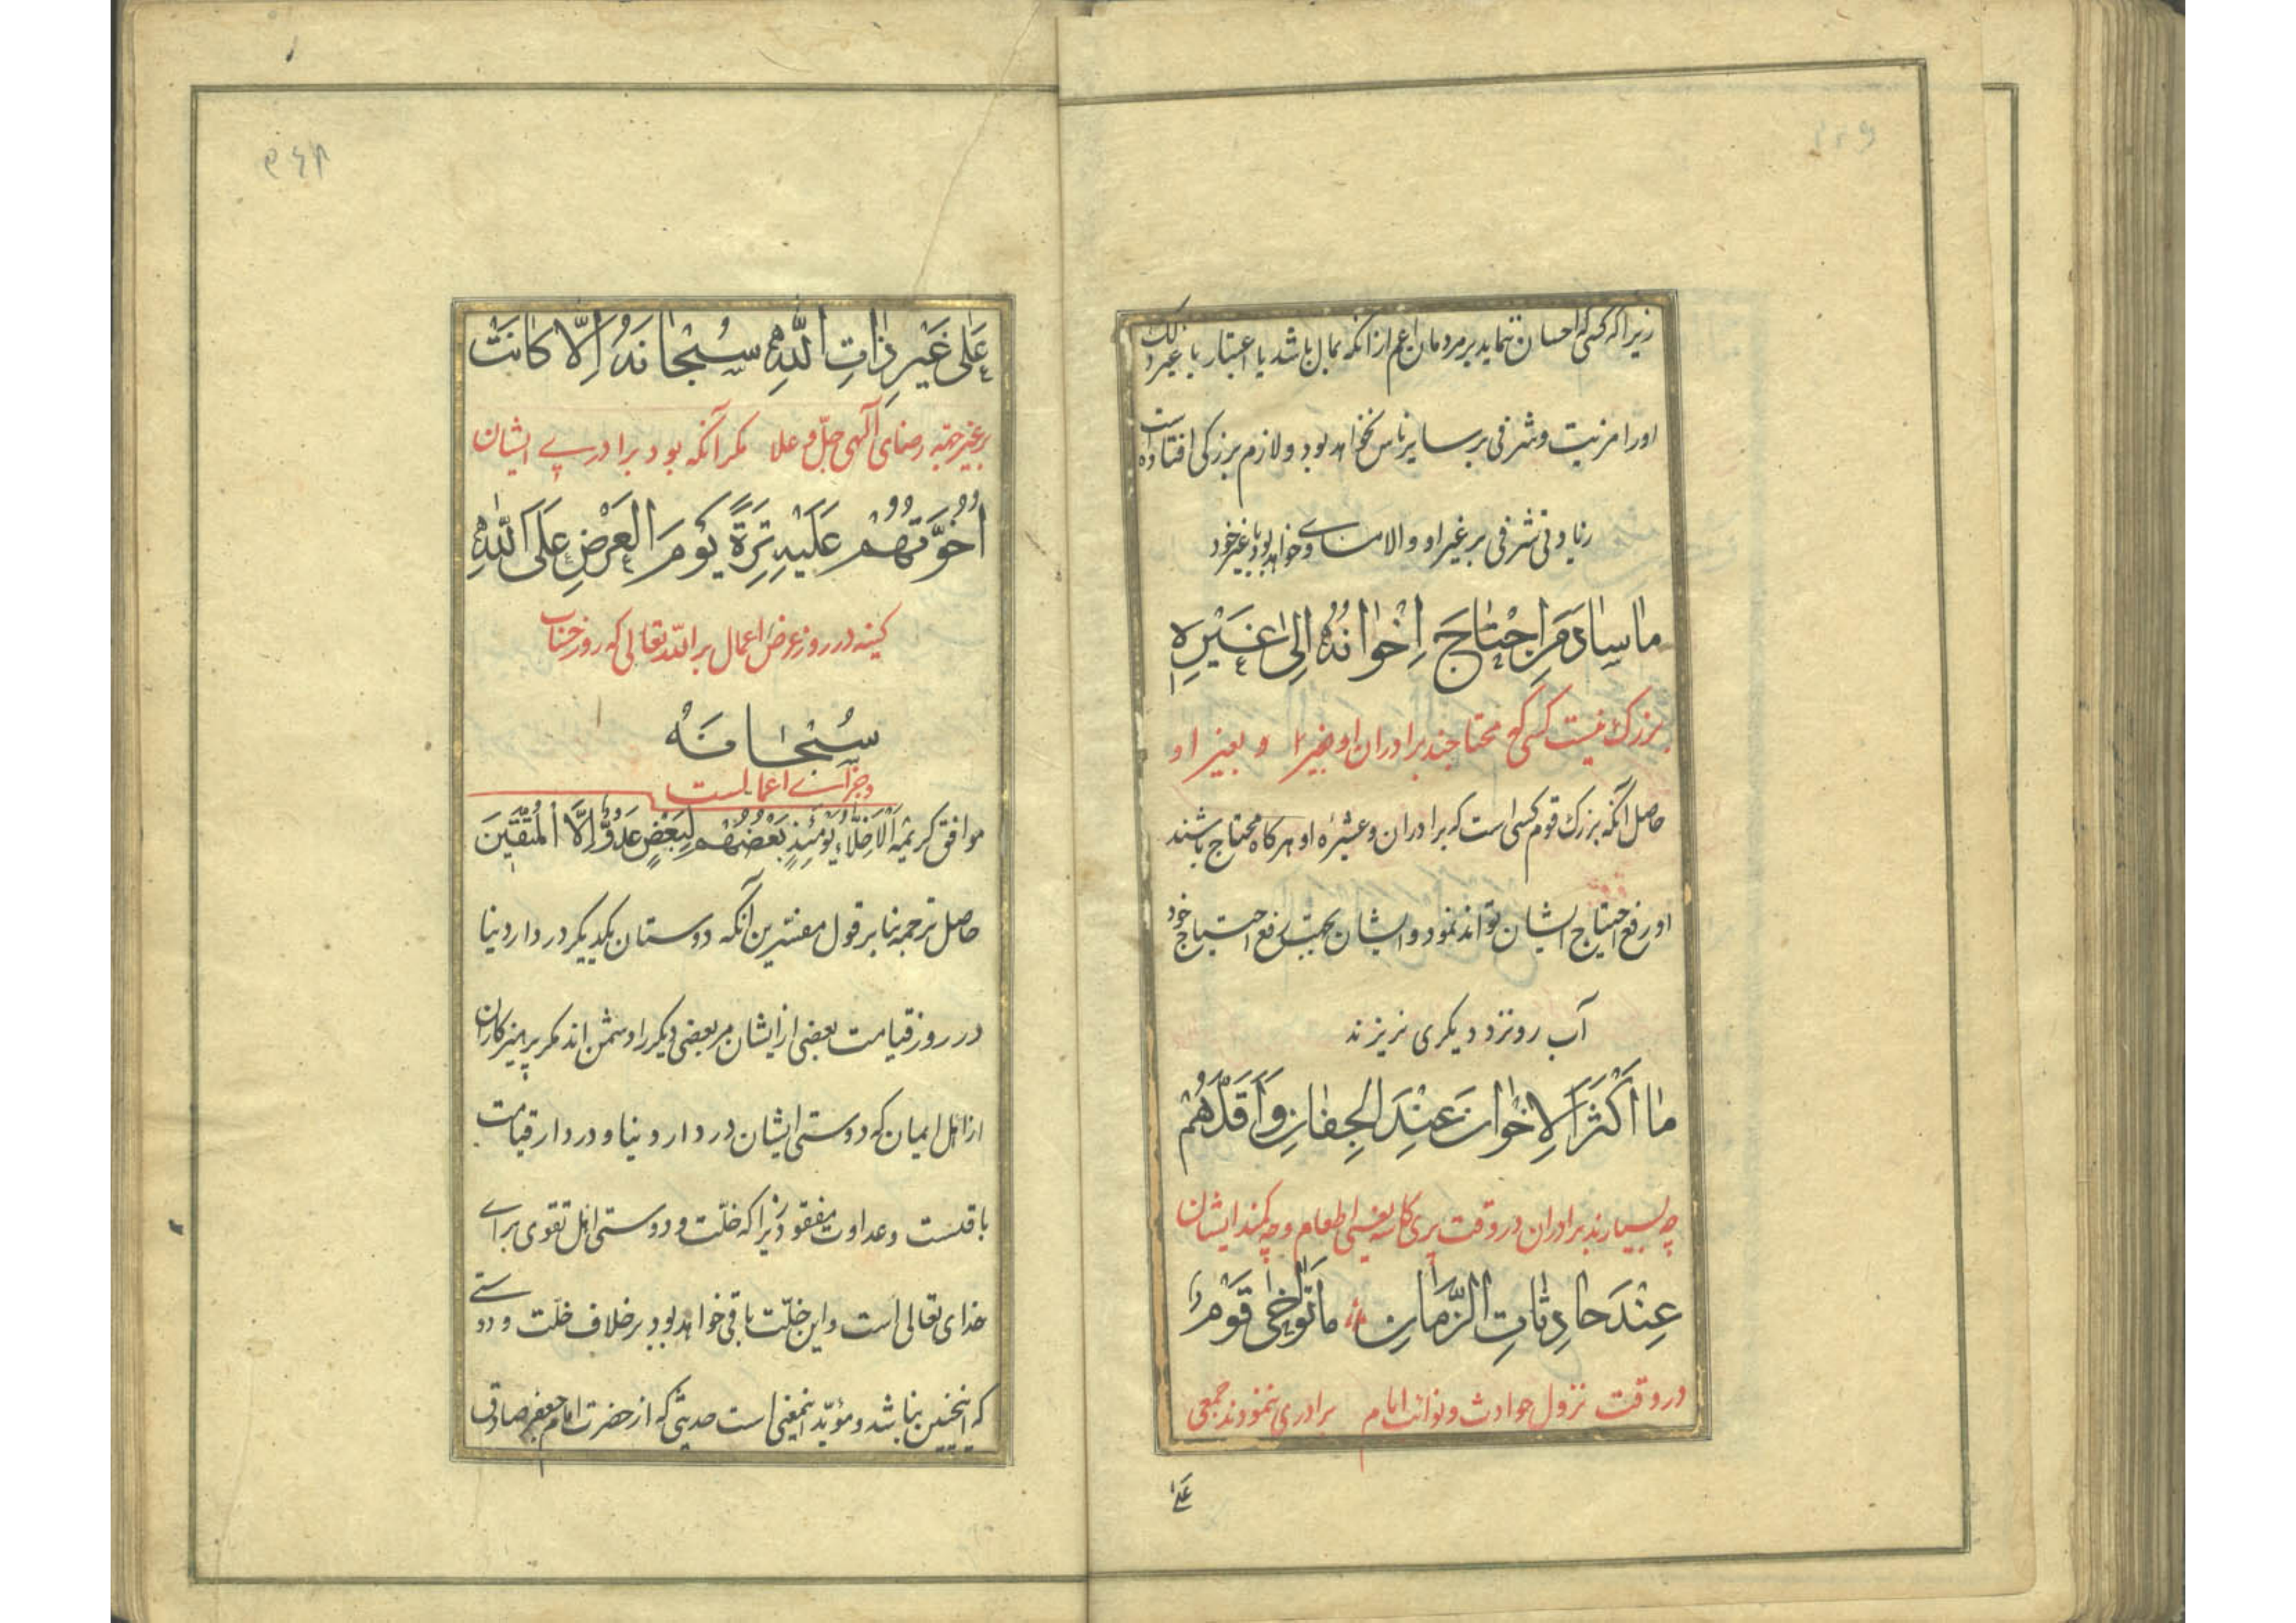 زیرا که کسی که احسان ننماید بر مردمان اعم از آنکه بمال باشد یا اعتبار یا غیر ذلک
اورا مزیت و شرفی بر سایر ناس نخواهد بود و لازم بزرگی افتاده است
زیادتی شرفی بر غیر او و الا مساوی خواهد بود با غیر خود
مٰا سٰادَ مَنِ احْتٰاجَ اِخْوٰانُهُ اِلیٰ غَیْرِهِ
بزرگ نیست کسی که محتاجند برادران او بغیر او
حاصل آنکه بزرگ قوم کسی است که برادران و عشیره او هرگاه محتاج باشند
او رفع احتیاج ایشان تواند نمود و ایشان بجهت رفع احتیاج خود
آب رو نزد دیگری نریزند
مٰا اَکْثَرَ الْاِخْوٰانَ عِنْدَ الْجِفٰانِ وَ اَقَلَّهُمْ
چه بسیارند برادران در وقت پری کاسه یعنی اطعام و چه کمند ایشان
عِنْدَ حٰادِثٰاتِ الزَّمٰانِ مٰا تَوٰاخیٰ قَوْمٌ
در وقت نزول حوادث و نوائب ایام برادری ننمودند جمعی
عَلیٰ
۹۴۸
عَلیٰ غَیْرِ ذٰاتِ اللّٰهِ سُبْحٰانَهُ اِلّٰا کٰانَتْ
بر غیر جهته رضای آلهی جلّ و علا مکر آنکه بود برادری ایشان
اُخُوَّتُهُمْ عَلَیْهِ تِرَةً یَوْمَ الْعَرْضِ عَلَی اللّٰهِ
کینه در روز عرض اعمال بر الله تعالی که روز حساب
سُبْحٰانَهُ
و جزای اعمالست
موافق کریمه اَلْاَخِلّاٰءُ یَوْمَئِذٍ بَعْضُهُمْ لِبَعْضٍ عَدُوٌّ اِلَّا الْمُتَّقینَ
حاصل ترجمه بنا بر قول مفسرین آنکه دوستان یکدیگر در دار دنیا
در روز قیامت بعضی از ایشان مر بعضی دیگر را دشمن اند مکر پرهیزکاران
از اهل ایمان که دوستی ایشان در دار دنیا و در دار قیامت
باقیست و عداوت مفقود زیرا که خلّت و دوستی اهل تقوی برای
خدای تعالی است و این خلّت باقی خواهد بود بر خلاف خلّت و دوستی
که اینچنین نباشد و مؤیّد اینمعنی است حدیثی که از حضرت امام جعفر صادق